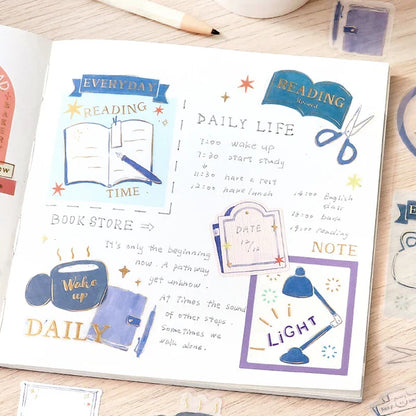 EVERYDAY
READING
TIME
READING
Record
DAILY LIFE
7:00 wake up
7:30 start study
11:30 have a rest
12:00 have lunch
14:00 English
class
19:00 reading
BOOK STORE
It's only the beginning
now. A pathway
yet unknow.
At Times the sound
of other steps.
Sometimes we
walk alone.
DATE
12/
NOTE
Wake
up
DAILY
LIGHT